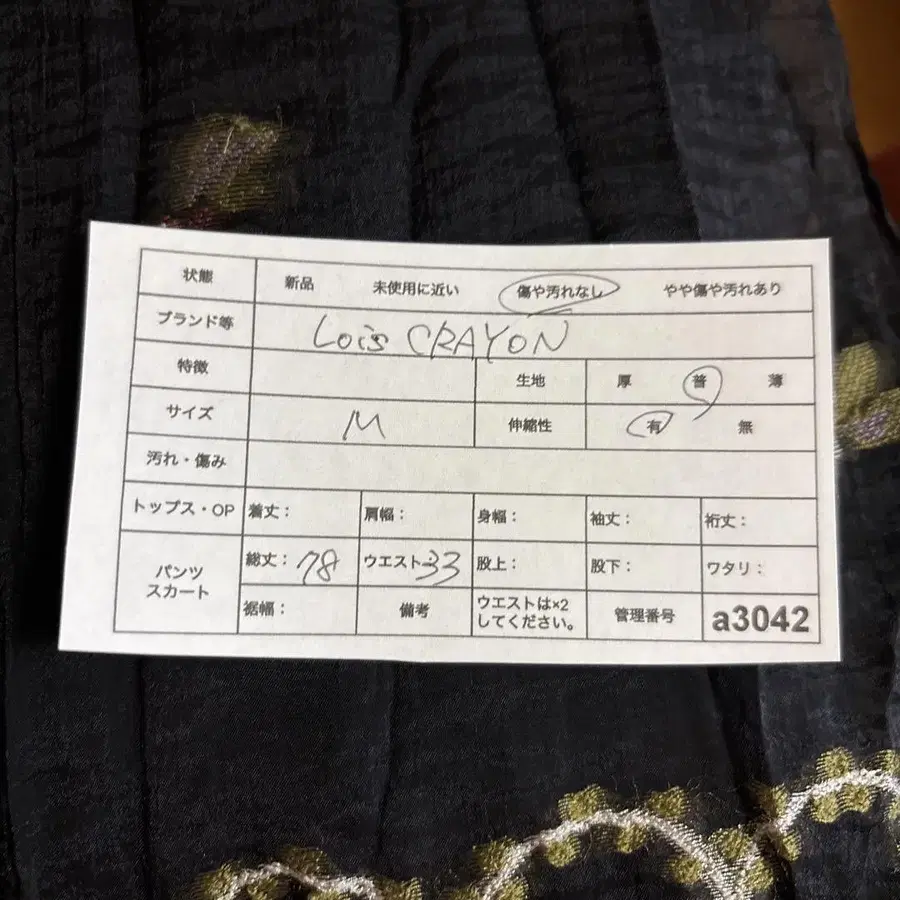 状態 新品 未使用に近い 傷や汚れなし やや傷や汚れあり
ブランド等 Lois CRAYON
特徴 生地 厚 普 薄
サイズ M 伸縮性 有 無
汚れ・傷み
トップス・OP 着丈: 肩幅: 身幅: 袖丈: 裄丈:
パンツ スカート 総丈: 78 ウエスト: 33 股上: 股下: ワタリ:
裾幅: 備考 ウエストは×2 してください。 管理番号 a3042